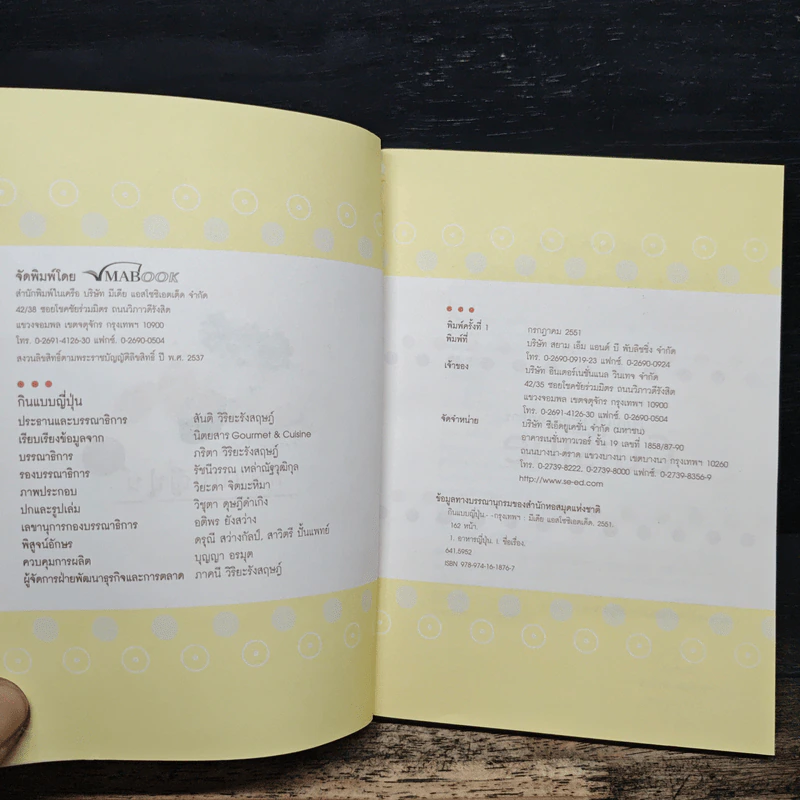 จัดพิมพ์โดย MABOOK
สำนักพิมพ์ในเครือ บริษัท มีเดีย แอสโซซิเอตเต็ด จำกัด
42/38 ซอยโชคชัยร่วมมิตร ถนนวิภาวดีรังสิต
แขวงจอมพล เขตจตุจักร กรุงเทพฯ 10900
โทร. 0-2691-4126-30 แฟกซ์. 0-2690-0504
สงวนลิขสิทธิ์ตามพระราชบัญญัติลิขสิทธิ์ ปี พ.ศ. 2537
กินแบบญี่ปุ่น
ประธานและบรรณาธิการ สันติ วิริยะรังสฤษฎ์
เรียบเรียงข้อมูลจาก นิตยสาร Gourmet & Cuisine
บรรณาธิการ ภริตา วิริยะรังสฤษฎ์
รองบรรณาธิการ รัชนีวรรณ เหล่าณัฐวุฒิกุล
ภาพประกอบ วิยะดา จิตมะหิมา
ปกและรูปเล่ม วิชุตา ดุษฎีดำเกิง
เลขานุการกองบรรณาธิการ อติพร ยังสว่าง
พิสูจน์อักษร ดรุณี สว่างกัลป์, สาวิตรี ปั้นแพทย์
ควบคุมการผลิต บุญญา อรมุต
ผู้จัดการฝ่ายพัฒนาธุรกิจและการตลาด ภาคนี วิริยะรังสฤษฎ์
พิมพ์ครั้งที่ 1 กรกฎาคม 2551
พิมพ์ที่ บริษัท สยาม เอ็ม แอนด์ บี พับลิชชิ่ง จำกัด
โทร. 0-2690-0919-23 แฟกซ์. 0-2690-0924
เจ้าของ บริษัท อินเตอร์เนชั่นแนล วินเทจ จำกัด
42/35 ซอยโชคชัยร่วมมิตร ถนนวิภาวดีรังสิต
แขวงจอมพล เขตจตุจักร กรุงเทพฯ 10900
โทร. 0-2691-4126-30 แฟกซ์. 0-2690-0504
จัดจำหน่าย บริษัท ซีเอ็ดยูเคชั่น จำกัด (มหาชน)
อาคารเนชั่นทาวเวอร์ ชั้น 19 เลขที่ 1858/87-90
ถนนบางนา-ตราด แขวงบางนา เขตบางนา กรุงเทพฯ 10260
โทร. 0-2739-8222, 0-2739-8000 แฟกซ์. 0-2739-8356-9
http://www.se-ed.com
ข้อมูลทางบรรณานุกรมของสำนักหอสมุดแห่งชาติ
กินแบบญี่ปุ่น.--กรุงเทพฯ : มีเดีย แอสโซซิเอตเต็ด, 2551.
162 หน้า.
1. อาหารญี่ปุ่น. I. ชื่อเรื่อง.
641.5952
ISBN 978-974-16-1876-7